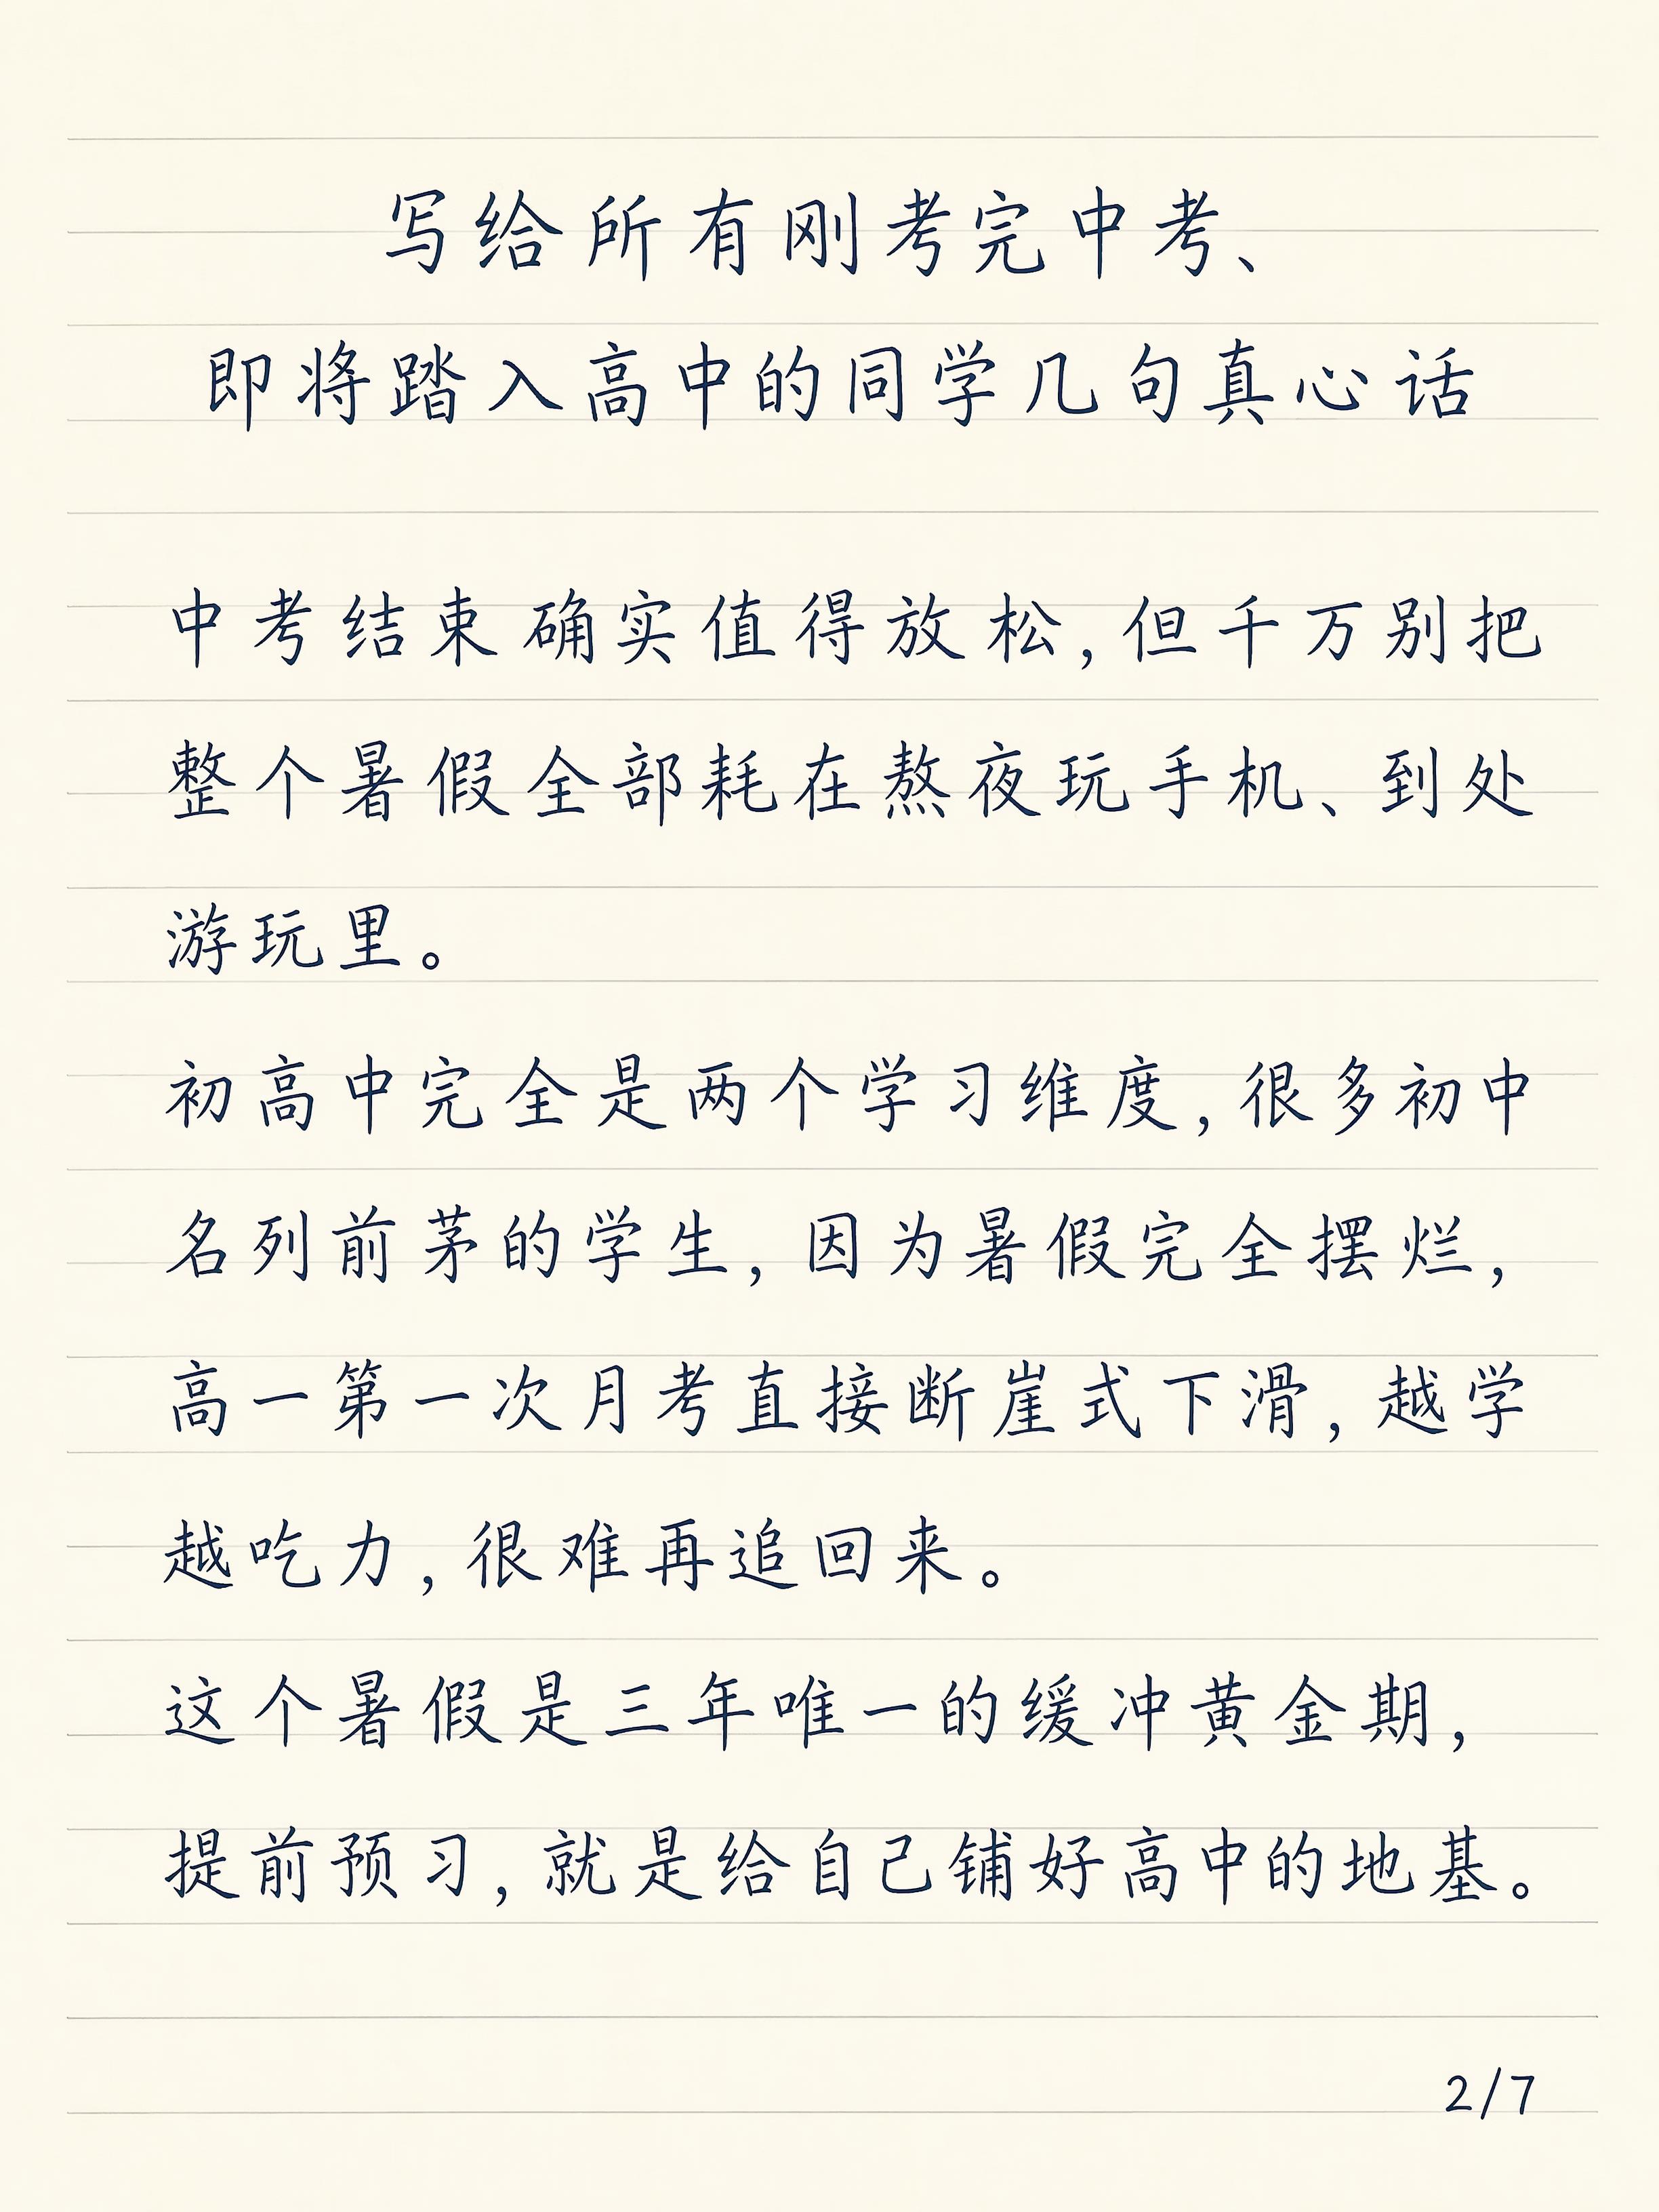 写给所有刚考完中考、
即将踏入高中的同学几句真心话
中考结束确实值得放松,但千万别把
整个暑假全部耗在熬夜玩手机、到处
游玩里。
初高中完全是两个学习维度,很多初中
名列前茅的学生,因为暑假完全摆烂,
高一第一次月考直接断崖式下滑,越学
越吃力,很难再追回来。
这个暑假是三年唯一的缓冲黄金期,
提前预习,就是给自己铺好高中的地基。
2/7